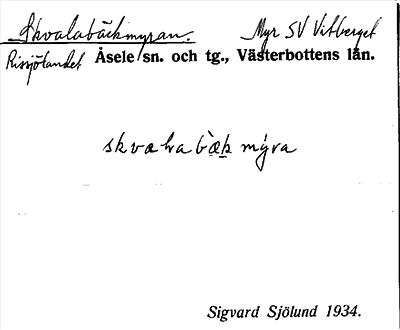 Skvalabäckmyran. Myr SV Vitberget
Rissjölandet Åsele sn. och tg., Västerbottens län.
skværa bæ̀k mýra
Sigvard Sjölund 1934.